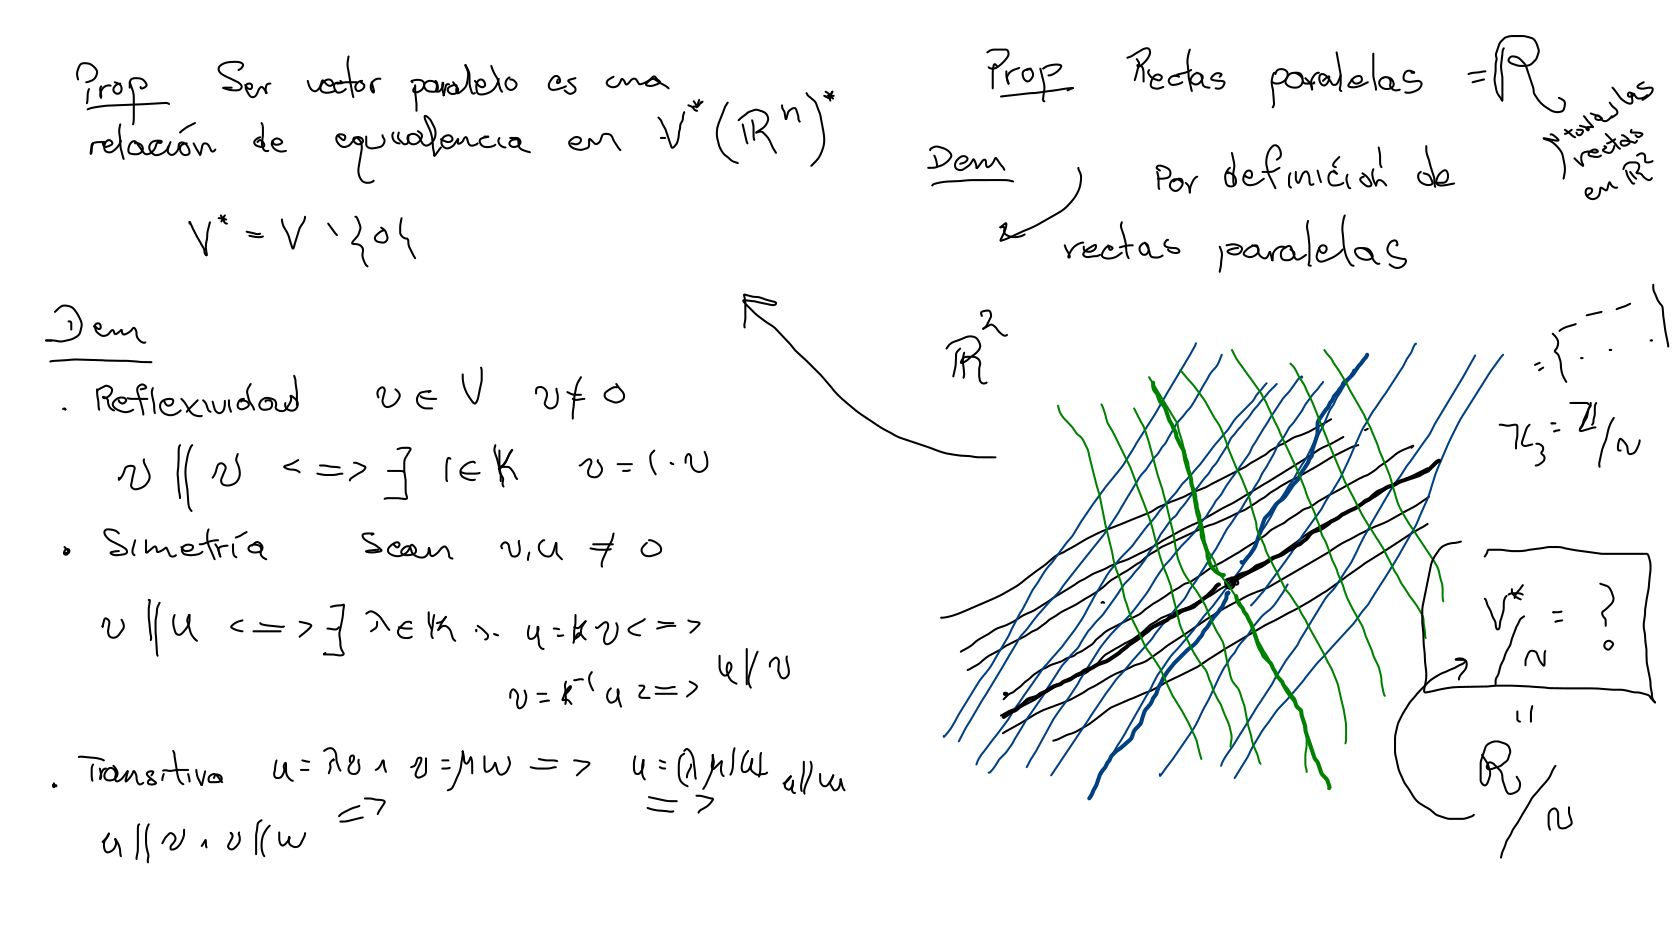 Prop Ser vector paralelo es una
relación de equivalencia en V* (ℝⁿ)*
V* = V \ {0}
Dem
. Reflexividad v ∈ V v ≠ 0
v ∥ v <=> ∃ 1 ∈ K v = 1 · v
. Simetría Sean v, u ≠ 0
v ∥ u <=> ∃ λ ∈ K u = k v <=>
v = k⁻¹ u <=> u ∥ v
. Transitiva u = λv ∧ v = μw => u = (λμ)w u ∥ w
<=> =>
u ∥ v ∧ v ∥ w
Prop Rectas paralelas = R
todas las
rectas
en ℝ²
Dem Por definición de
rectas paralelas
ℝ²
= { - - - }
. . .
ℤ₃ = ℤ/~
V*/~ = ?
=
R/~